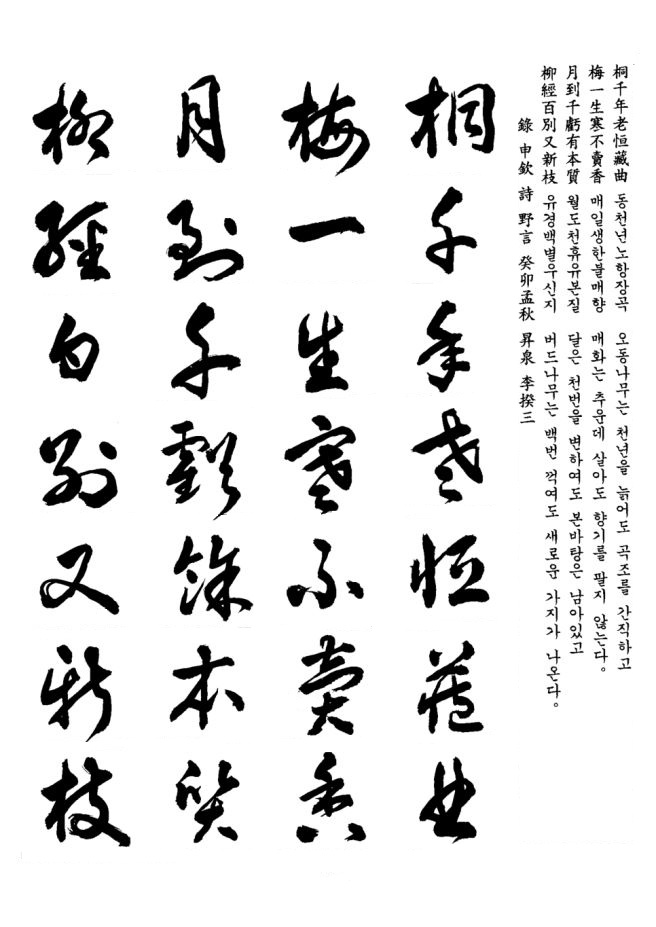 桐千年老恒藏曲 동천년노항장곡 오동나무는 천년을 늙어도 곡조를 간직하고
梅一生寒不賣香 매일생한불매향 매화는 추운데 살아도 향기를 팔지 않는다。
月到千虧有本質 월도천휴유본질 달은 천번을 변하여도 본바탕은 남아있고
柳經百別又新枝 유경백별우신지 버드나무는 백번 꺽여도 새로운 가지가 나온다。
錄 申欽 詩 野言 癸卯孟秋 昇泉 李揆三
桐千年老恒藏曲
梅一生寒不賣香
月到千虧餘本質
柳經百別又新枝